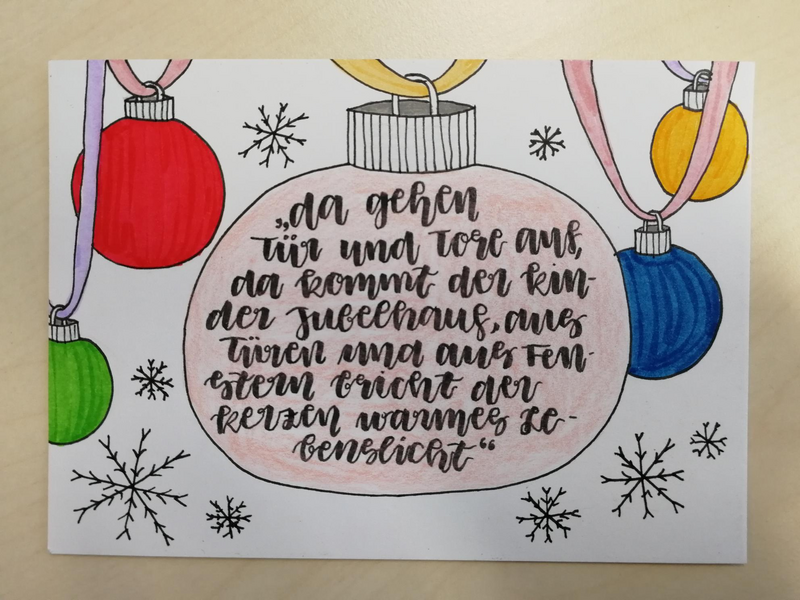 „da gehen
Tür und Tore auf,
da kommt der kin-
der Jubelhauf, aus
Türen und aus Fen-
stern bricht der
kerzen warmes Le-
benslicht“